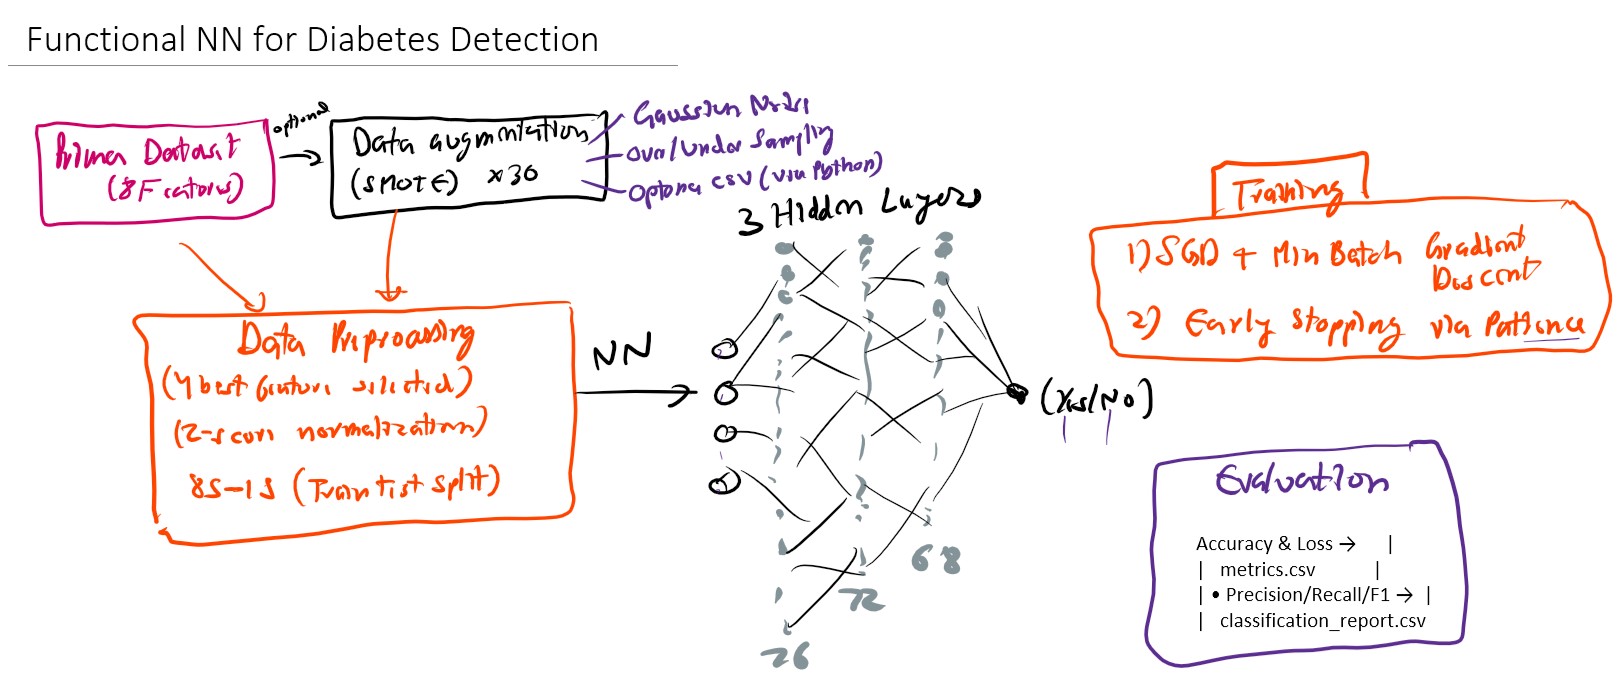 Functional NN for Diabetes Detection
Primer Dataset
(8 Features)
optional
Data augmentation
(SMOTE) x30
Gaussian Noise
Over/Under Sampling
Optona CSV (via Python)
Data Preprocessing
(4 best feature selected)
(Z-score normalization)
85-15 (Train test split)
NN
3 Hidden Layers
76
72
68
(Yes/No)
Training
1) SGD + Min Batch Gradient
Descent
2) Early Stopping via Patience
Evaluation
Accuracy & Loss → |
| metrics.csv |
| • Precision/Recall/F1 → |
| classification_report.csv